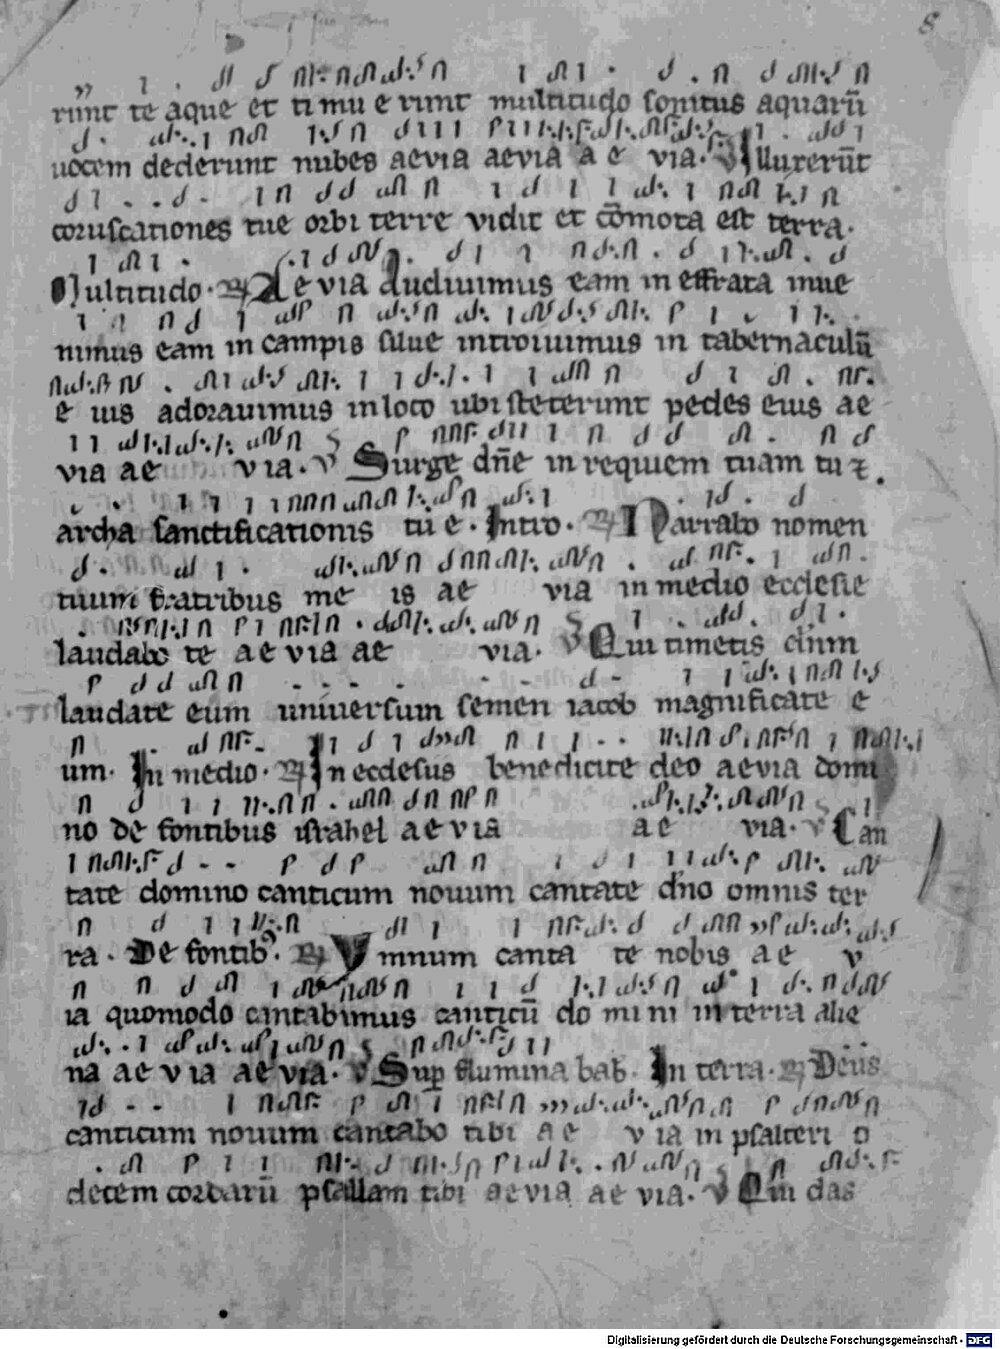 8
runt te aque et timu e runt multitudo sonitus aquarū
uocem dederunt nubes aevia aevia a e via. ℣ Illuxerūt
coruscationes tue orbi terre vidit et cōmota est terra.
Multitudo. ℟ Ae via Audiuimus eam in effrata inue
nimus eam in campis silue introiuimus in tabernaculū
e ius adorauimus in loco ubi steterunt pedes eius ae
via ae via. ℣ Surge dn̄e in requiem tuam tu ⁊
archa sanctificationis tu e. Intro. ℟ Narrabo nomen
tuum fratribus me is ae via in medio ecclesie
laudabo te a e via ae via. ℣ Qui timetis dnm
laudate eum universum semen iacob magnificate e
um. In medio. ℟ In ecclesiis benedicite deo aevia domi
no de fontibus israhel a e via a e via. ℣ Can
tate domino canticum nouum cantate d'no omnis ter
ra. De fontib⁹. ℟ Ymnum canta te nobis a e v
ia quomodo cantabimus canticū do mi ni in terra alie
na ae v ia aevia. ℣ Sup flumina bab. In terra. ℟ Deus
canticum nouum cantabo tibi a e v ia in psalteri o
decem cordarū psallam tibi aevia ae via. ℣ Qui das
Digitalisierung gefördert durch die Deutsche Forschungsgemeinschaft - DFG